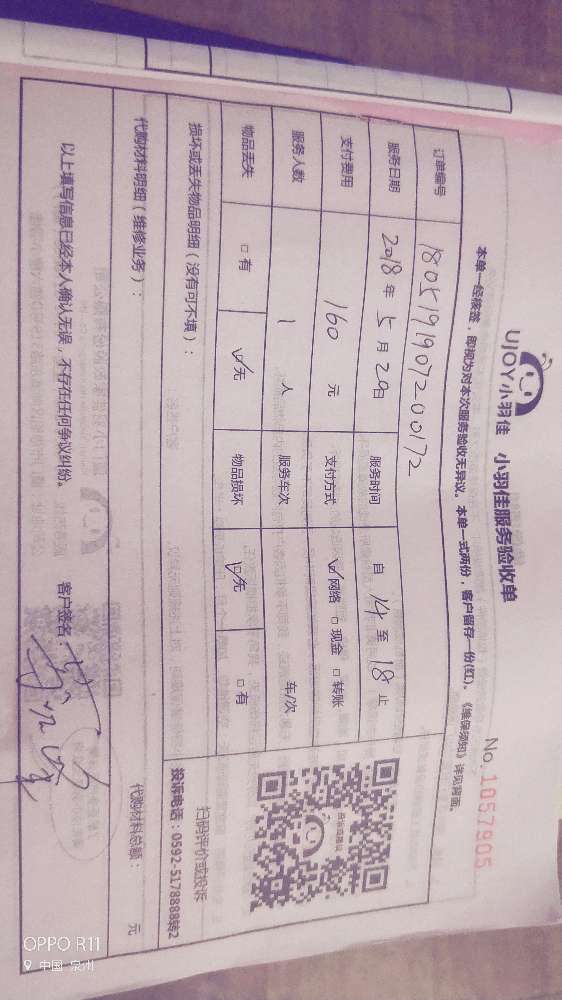 UJOY小羽佳 小羽佳服务验收单 No.1057905
本单一经核签，即视为对本次服务验收无异议。本单一式两份，客户留存一份(红)。《维保须知》详见背面。
订单编号 1805191907200172
服务日期 2018年5月20日 服务时间 自14至18止
支付费用 160元 支付方式 ☑网络 □现金 □转账
服务人数 1人 服务车次 车/次
物品丢失 □有 ☑无 物品损坏 ☑无 □有
扫码评价或投诉
投诉电话：0592-5178888转2
损坏或丢失物品明细（没有可不填）：
代购材料明细（维修业务）：
代购材料总额： 元
以上填写信息已经本人确认无误，不存在任何争议纠纷。 客户签名：
OPPO R11
中国·泉州